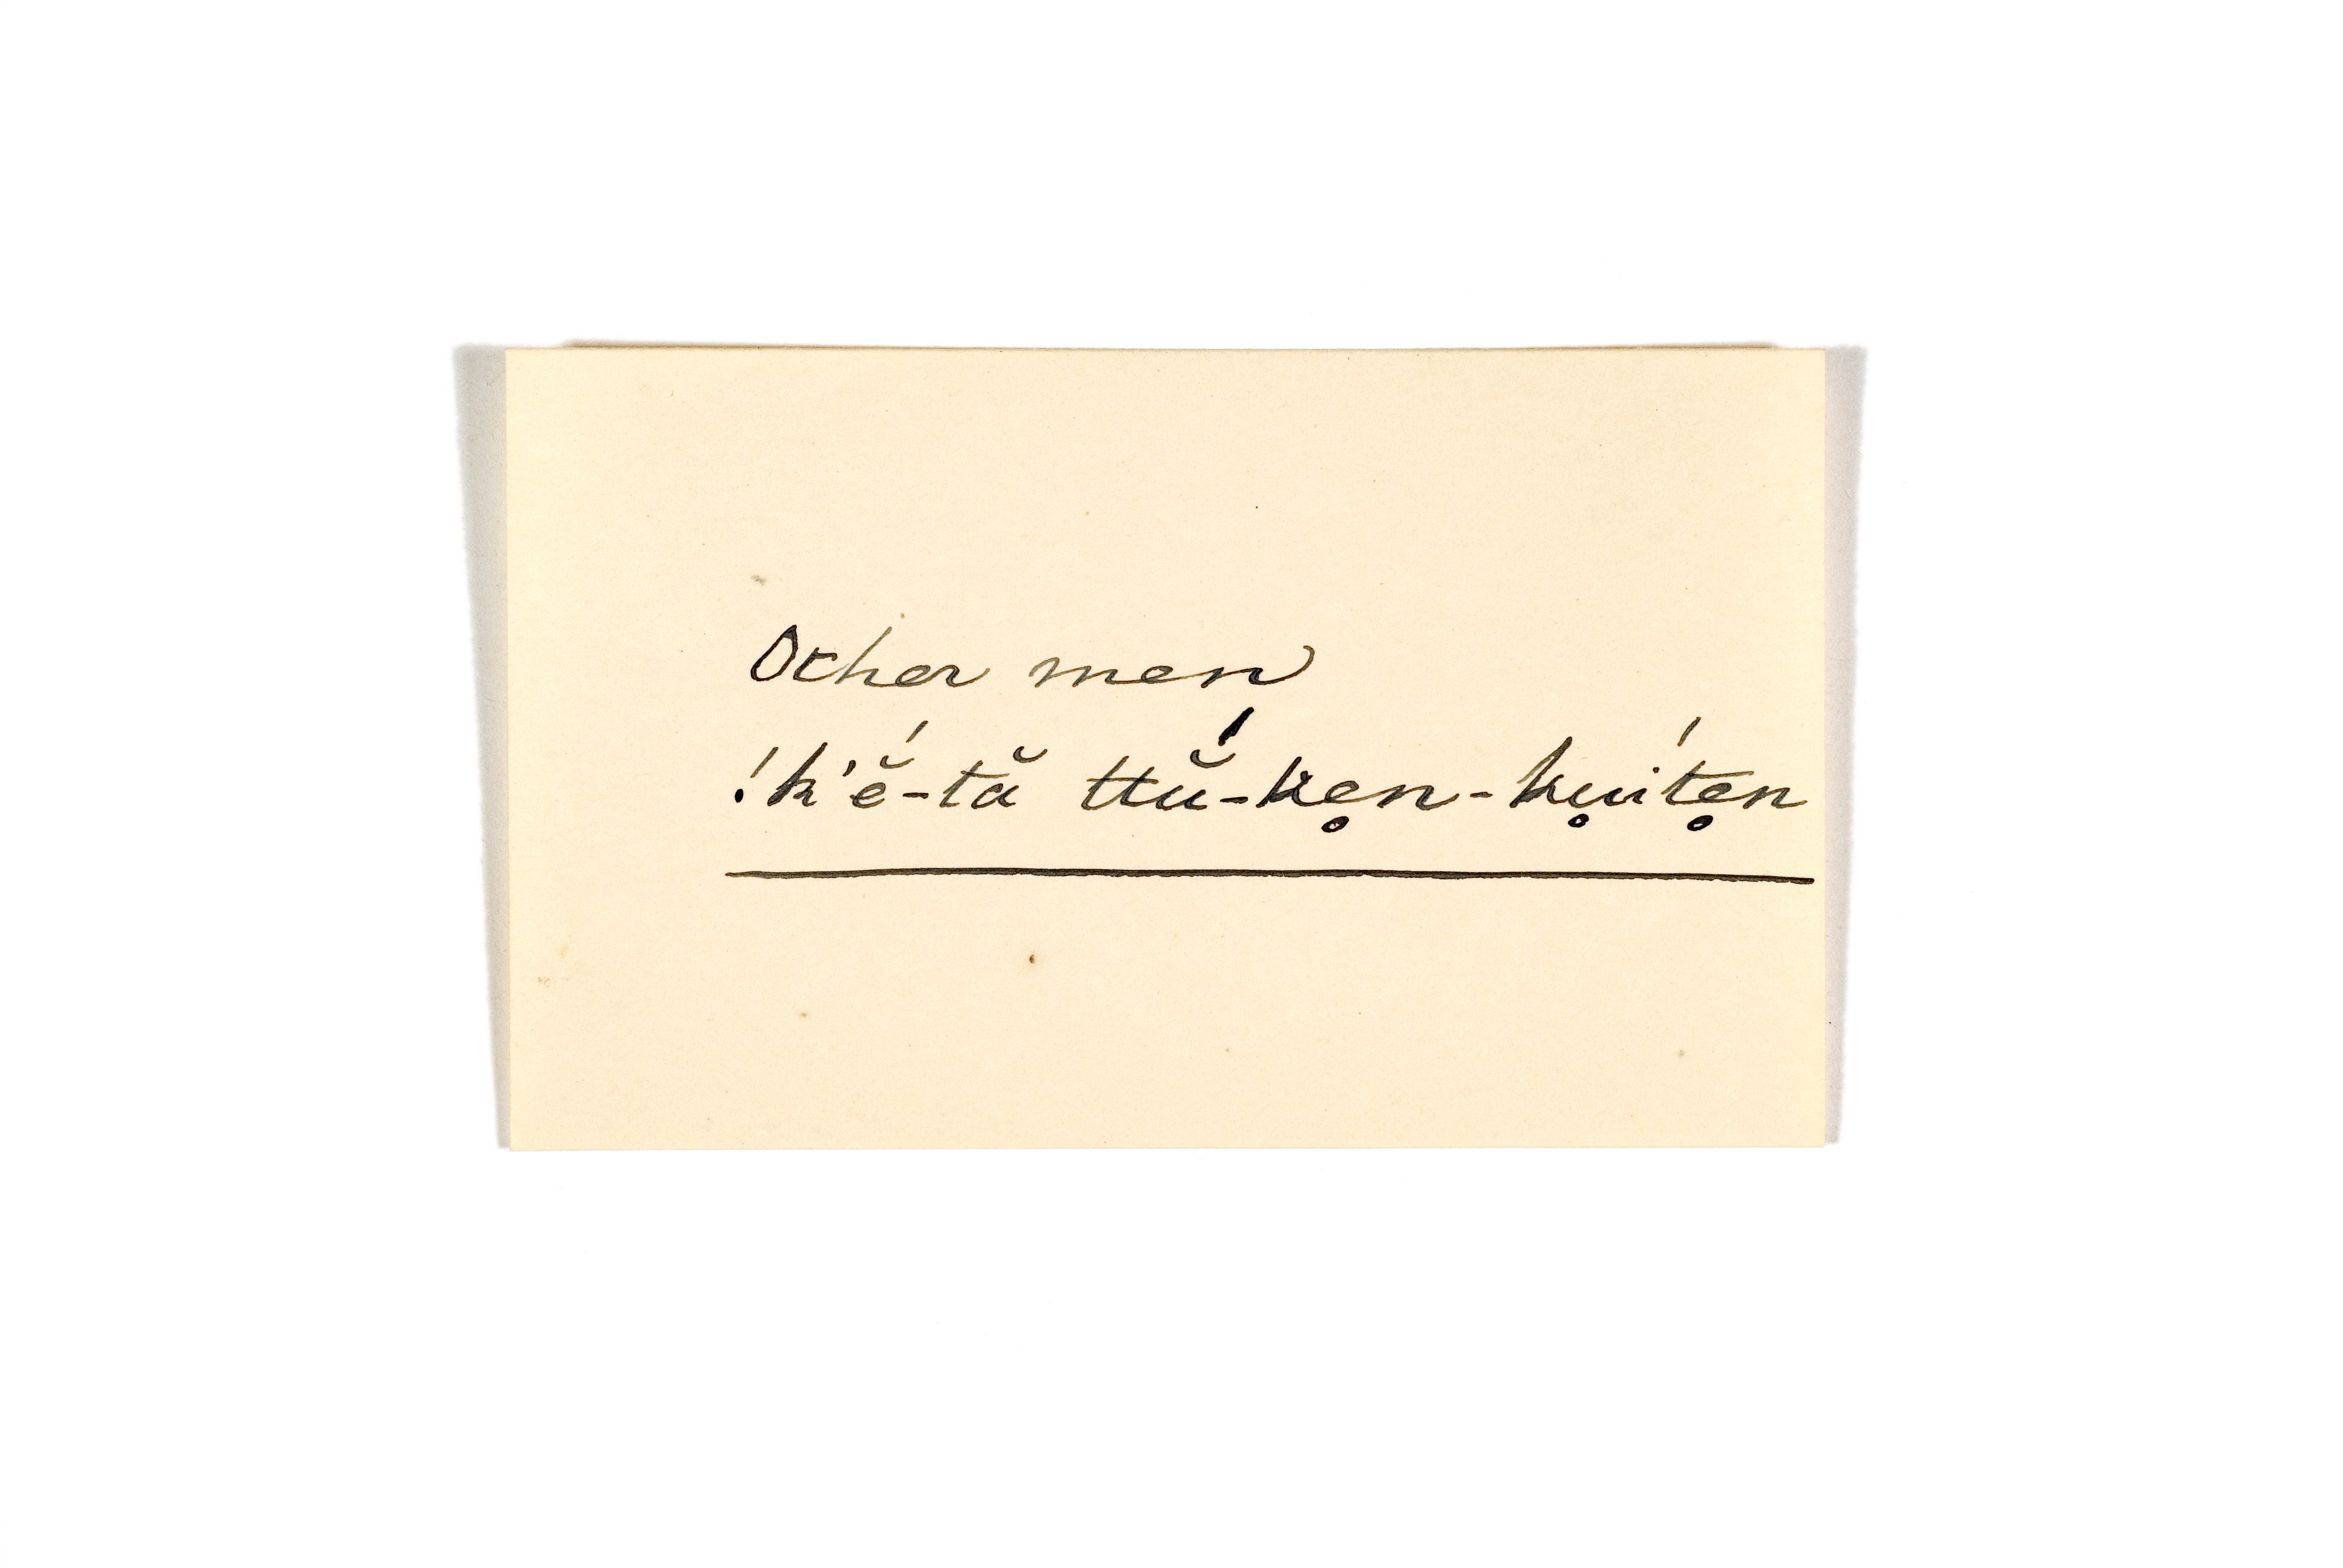 Other men
!k'ĕ́-tă ttŭ́-ken̥-ku̥íte̥n